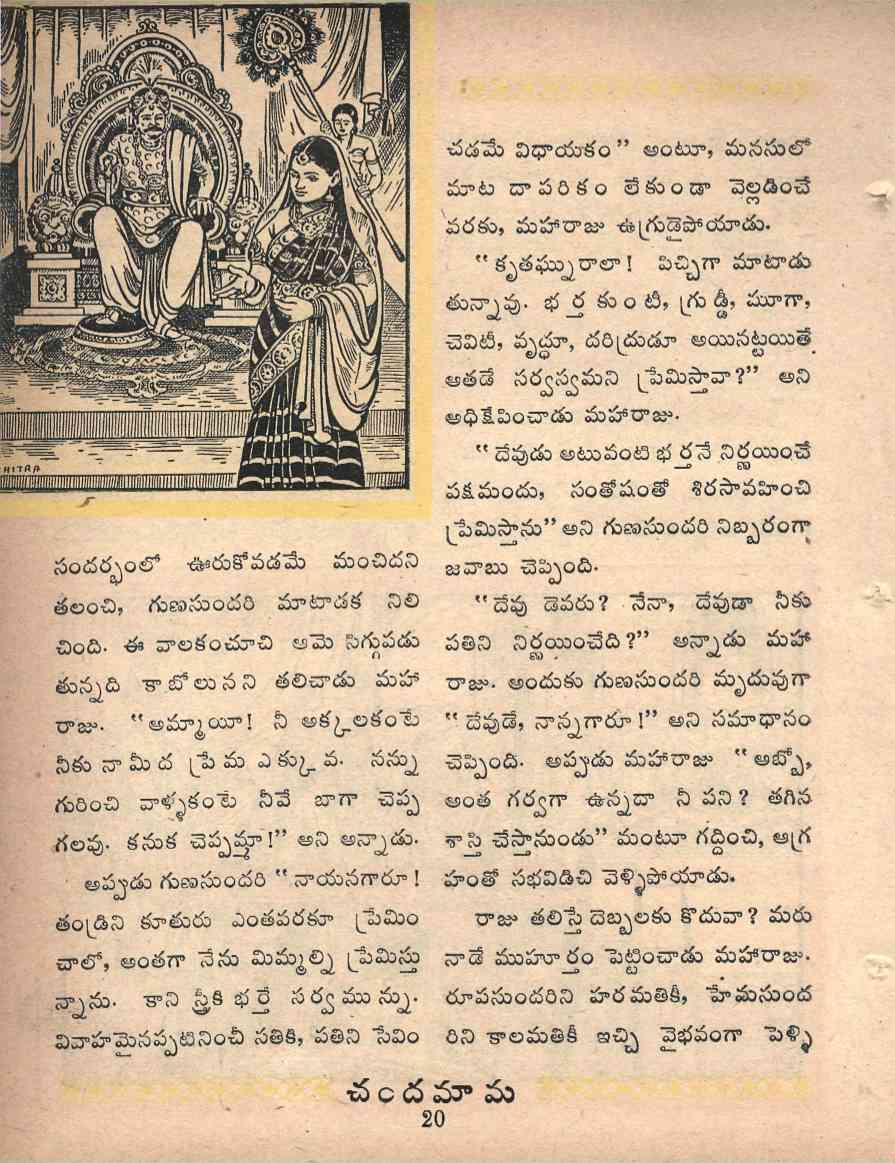 HITRA
సందర్భంలో ఊరుకోవడమే మంచిదని
తలంచి, గుణసుందరి మాటాడక నిలి
చింది. ఈ వాలకంచూచి ఆమె సిగ్గుపడు
తున్నది కాబోలునని తలిచాడు మహా
రాజు. “అమ్మాయీ! నీ అక్కలకంటే
నీకు నామీద ప్రేమ ఎక్కువ. నన్ను
గురించి వాళ్ళకంటే నీవే బాగా చెప్ప
గలవు. కనుక చెప్పమ్మా!” అని అన్నాడు.
అప్పుడు గుణసుందరి “నాయనగారూ!
తండ్రిని కూతురు ఎంతవరకూ ప్రేమిం
చాలో, అంతగా నేను మిమ్మల్ని ప్రేమిస్తు
న్నాను. కాని స్త్రీకి భర్తే సర్వమున్ను.
వివాహమైనప్పటినించీ సతికి, పతిని సేవిం
చడమే విధాయకం” అంటూ, మనసులో
మాట దాపరికం లేకుండా వెల్లడించే
వరకు, మహారాజు ఉగ్రుడైపోయాడు.
“కృతఘ్నురాలా! పిచ్చిగా మాటాడు
తున్నావు. భర్త కుంటీ, గ్రుడ్డీ, మూగా,
చెవిటీ, వృద్ధూ, దరిద్రుడూ అయినట్టయితే
ఆతడే సర్వస్వమని ప్రేమిస్తావా?” అని
అధిక్షేపించాడు మహారాజు.
“దేవుడు అటువంటి భర్తనే నిర్ణయించే
పక్షమందు, సంతోషంతో శిరసావహించి
ప్రేమిస్తాను” అని గుణసుందరి నిబ్బరంగా
జవాబు చెప్పింది.
“దేవు డెవరు? నేనా, దేవుడా నీకు
పతిని నిర్ణయించేది?” అన్నాడు మహా
రాజు. అందుకు గుణసుందరి మృదువుగా
“దేవుడే, నాన్నగారూ!” అని సమాధానం
చెప్పింది. అప్పుడు మహారాజు “అబ్బో,
అంత గర్వగా ఉన్నదా నీ పని? తగిన
శాస్తి చేస్తానుండు” మంటూ గద్దించి, ఆగ్ర
హంతో సభవిడిచి వెళ్ళిపోయాడు.
రాజు తలిస్తే దెబ్బలకు కొదువా? మరు
నాడే ముహూర్తం పెట్టించాడు మహారాజు.
రూపసుందరిని హరమతికీ, హేమసుంద
రిని కాలమతికీ ఇచ్చి వైభవంగా పెళ్ళి
చందమామ
20